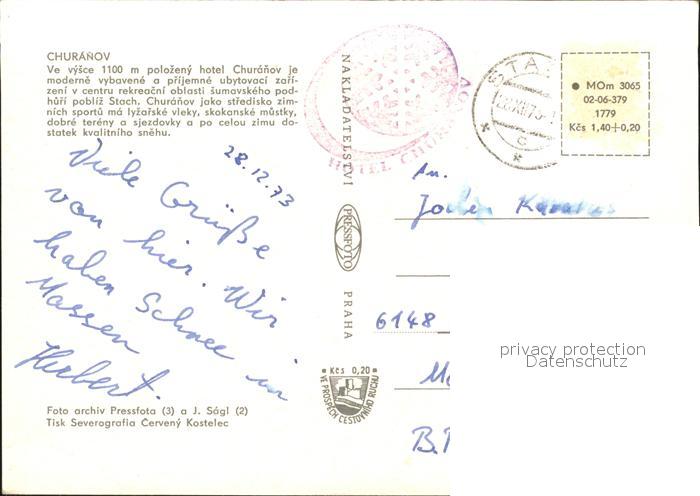 CHURÁŇOV
Ve výšce 1100 m položený hotel Churáňov je
moderně vybavené a příjemné ubytovací zaří-
zení v centru rekreační oblasti šumavského pod-
hůří poblíž Stach. Churáňov jako středisko zim-
ních sportů má lyžařské vleky, skokanské můstky,
dobré terény a sjezdovky a po celou zimu do-
statek kvalitního sněhu.
28.12.73
Viele Grüße
von hier. Wir
haben Schnee in
Massen
Hubert.
Foto archiv Pressfota (3) a J. Ságl (2)
Tisk Severografia Červený Kostelec
NAKLADATELSTVÍ
PRESSFOTO
PRAHA
Kčs 0,20
VE PROSPĚCH CESTOVNÍHO RUCHU
HOTEL
MOm 3065
02-06-379
1779
Kčs 1,40+0,20
An.
6148
privacy protection
Datenschutz